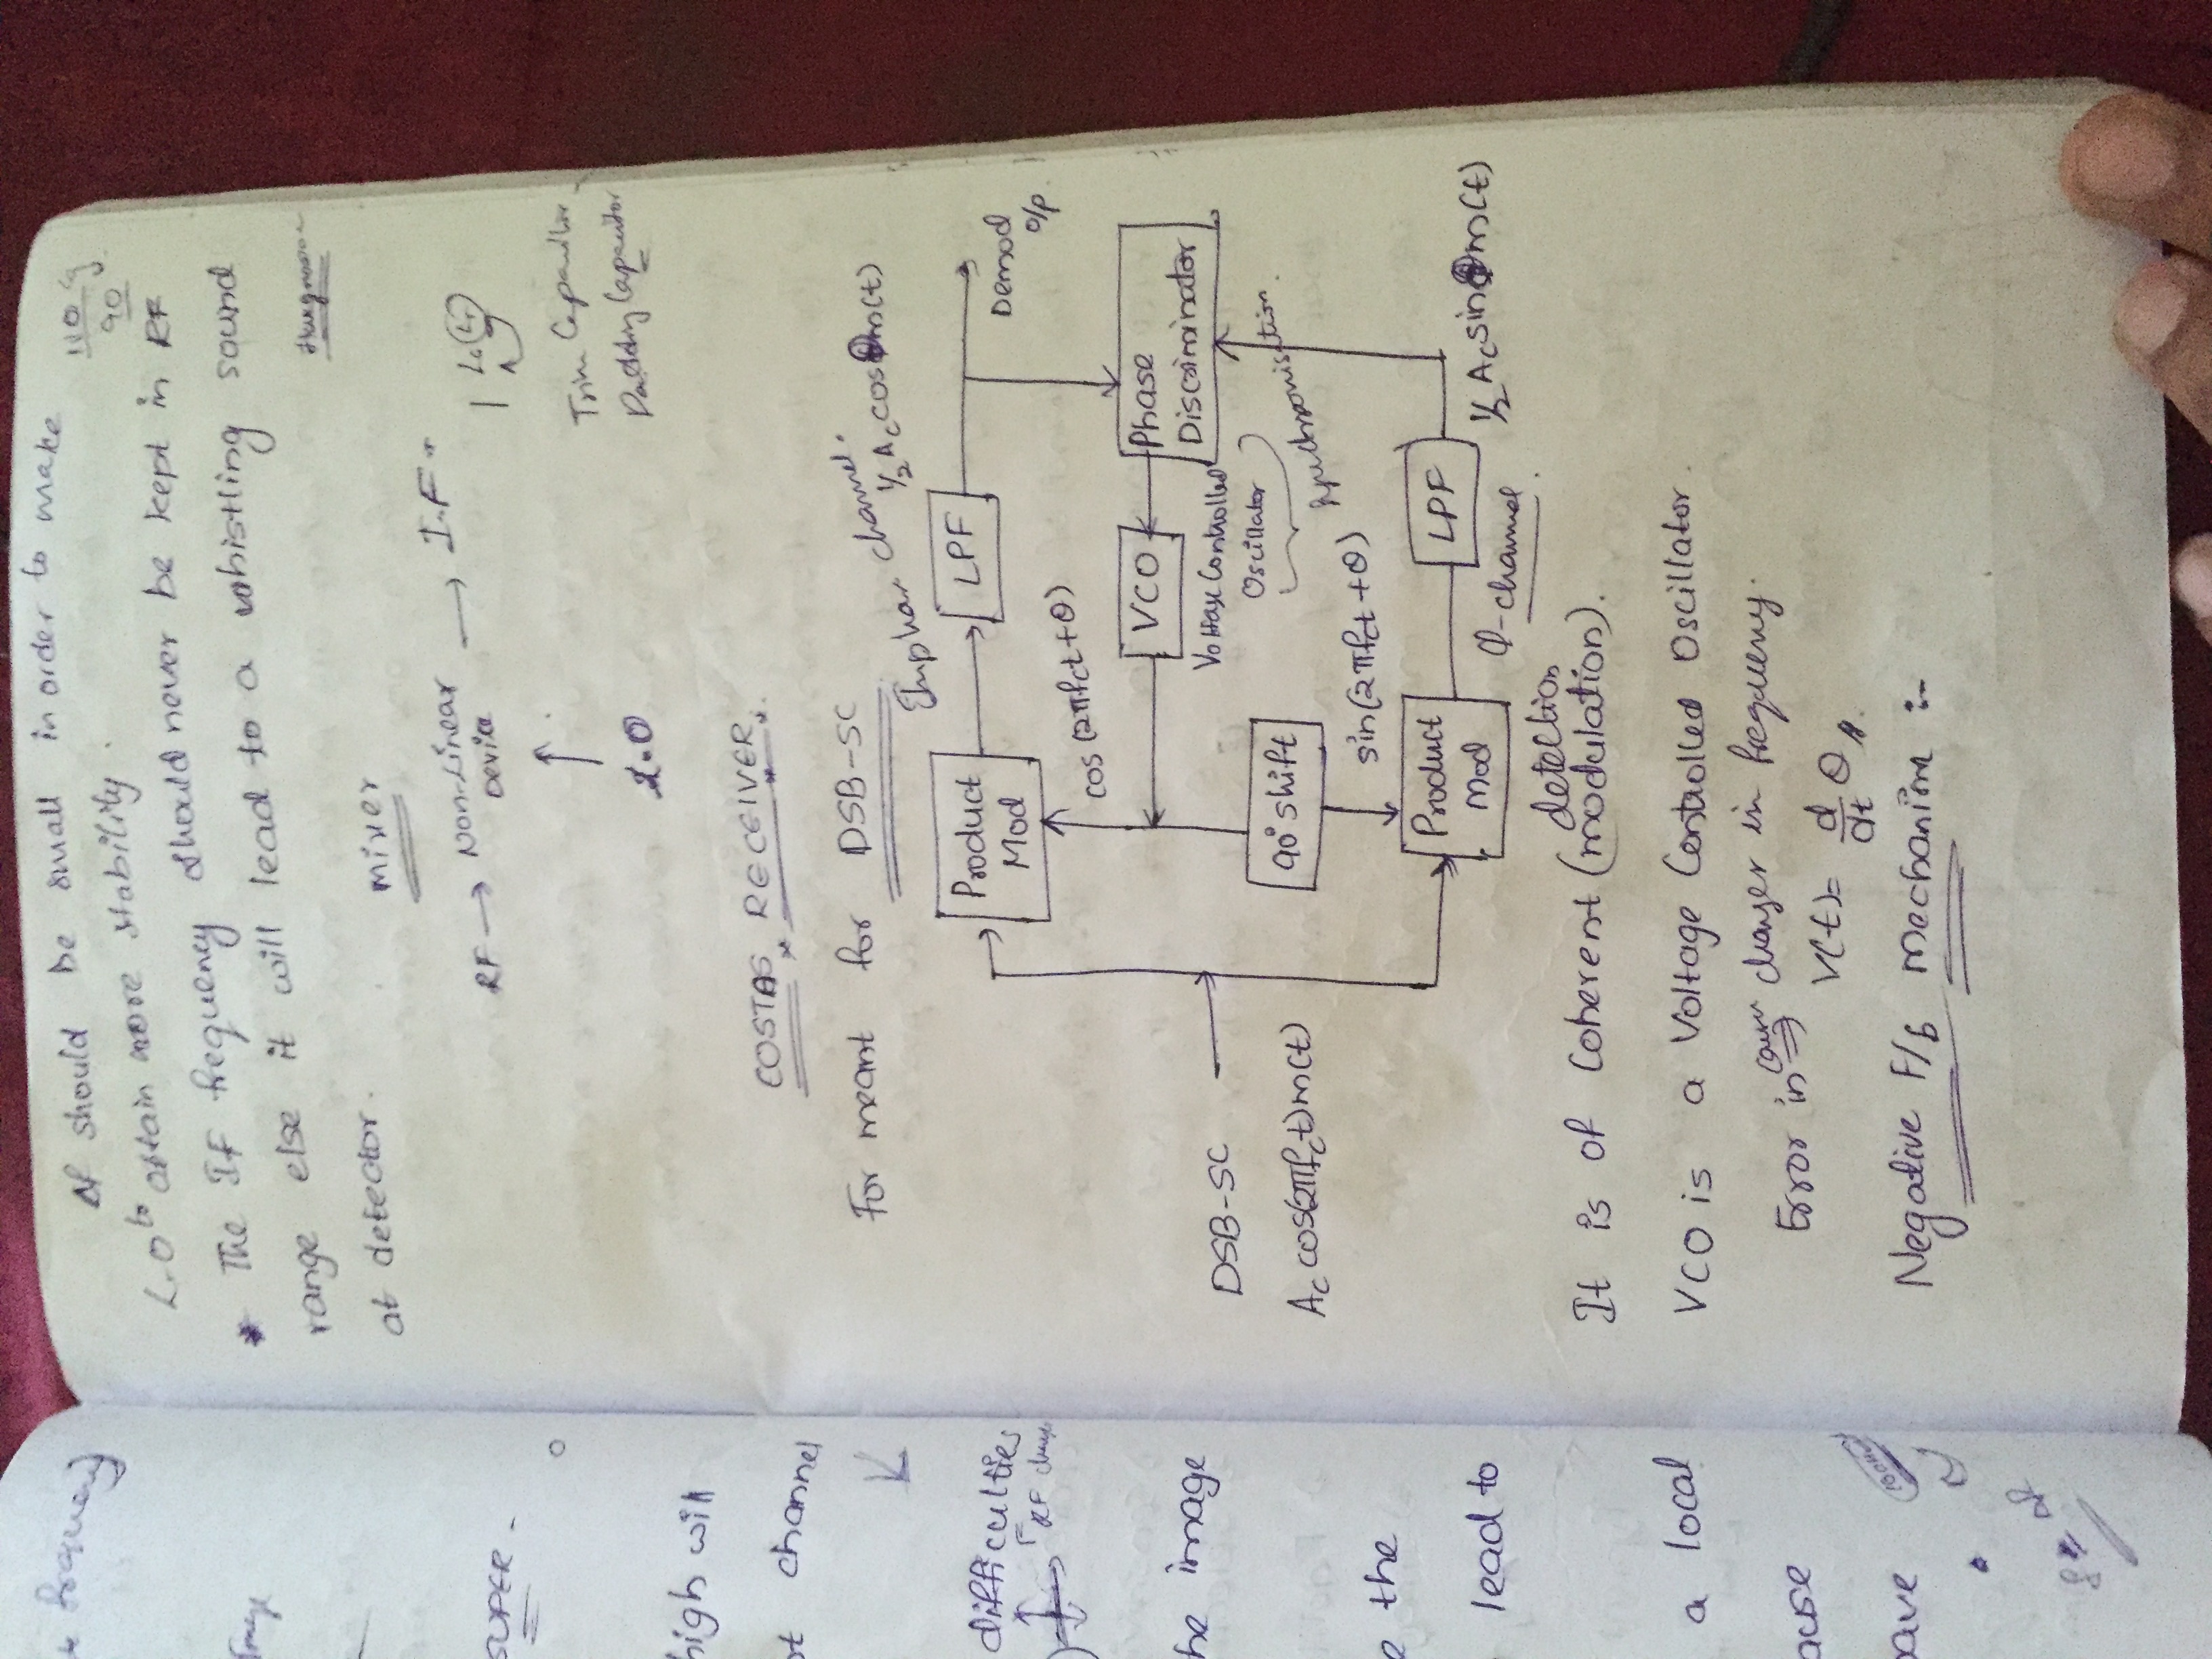 frequency
SUPER -
high will
channel
difficulties
RF
the image
the
lead to
a local
Δf should be small in order to make
L.O to attain more stability.
* The IF frequency should never be kept in RF
range else it will lead to a whistling sound
at detector.
90
mixer
RF → Non-Linear Device → I.F
L.O
Trim Capacitor
Padding Capacitor
COSTAS RECEIVER.
For meant for DSB-SC
Inphase channel.
1/2 Ac cosθ m(t)
Product Mod
LPF
Demod o/p
cos(2πfct+θ)
VCO
Phase Discriminator
Voltage Controlled Oscillator
Synchronisation.
DSB-SC
Ac cos(2πfct)m(t)
90° shift
sin(2πfct+θ)
Product Mod
LPF
Q-channel
1/2 Ac sinθ m(t)
detection
It is of Coherent (modulation).
VCO is a Voltage Controlled Oscillator.
Error in ⇒ changes in frequency.
V(t)= d/dt θ
Negative F/b Mechanism :-